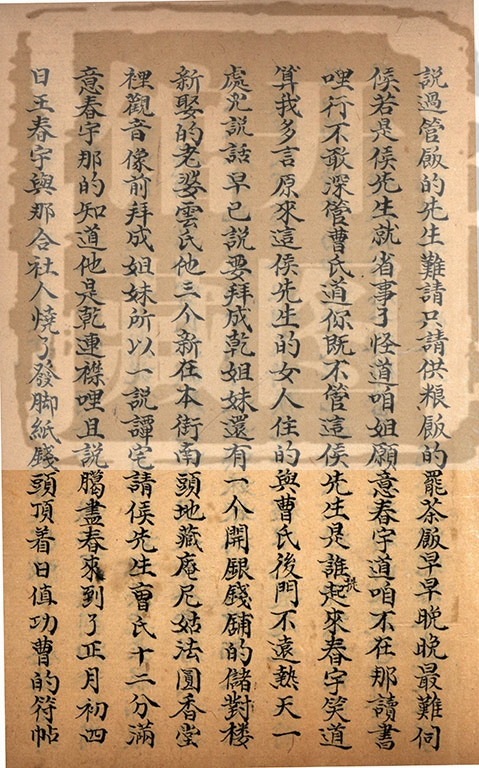 說過管飯的先生難請只請供粮飯的罷茶飯早早晚晚最難伺
候若是侯先生就省事了怪道咱姐願意春宇道咱不在那讀書
哩行不敢深管曹氏道你既不管這侯先生是誰說起來春宇笑道
算我多言原來這侯先生的女人住的與曹氏後門不遠熱天一
處兒說話早已說要拜成乾姐妹還有一个開銀錢鋪的儲對樓
新娶的老婆雲氏他三个新在本街南頭地藏庵尼姑法圓香堂
裡觀音像前拜成姐妹所以一說譚宅請侯先生曹氏十二分滿
意春宇那的知道他是乾連襟哩且說臈盡春來到了正月初四
日王春宇與那合社人燒了發脚紙錢頭頂着日值功曹的符帖